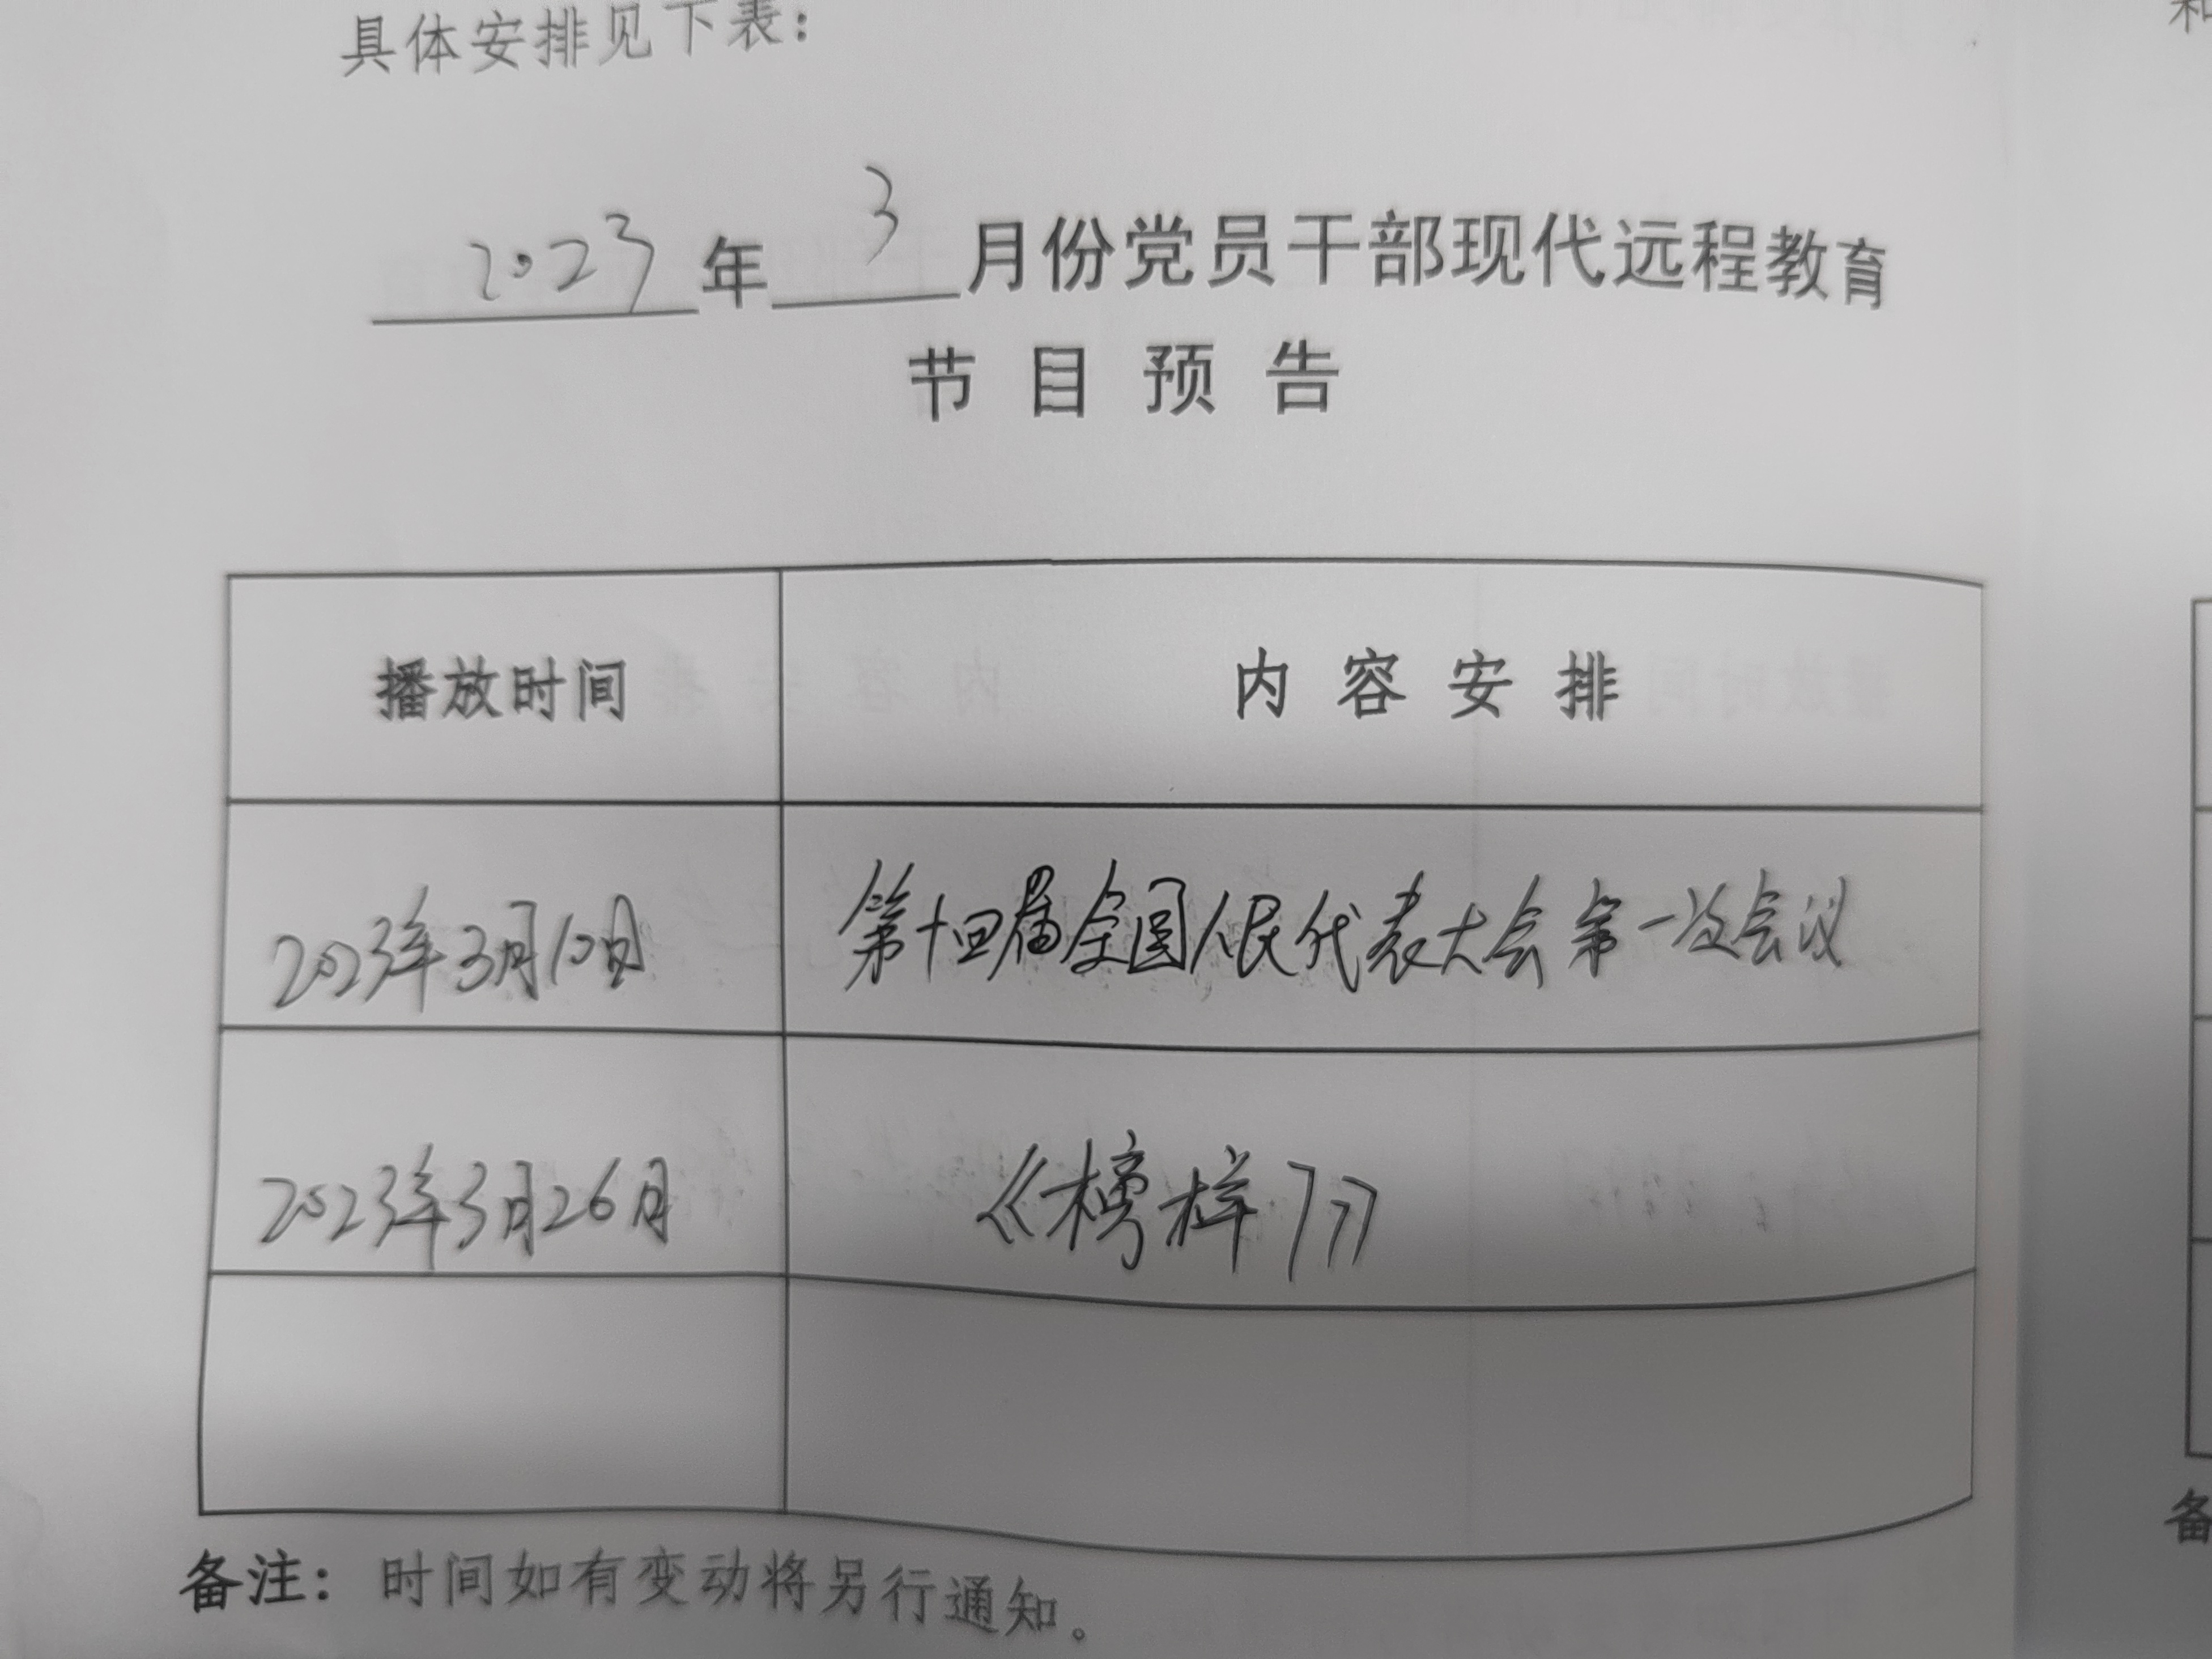 具体安排见下表：
2023年3月份党员干部现代远程教育
节目预告
播放时间 内容安排
2023年3月10日 第十四届全国人民代表大会第一次会议
2023年3月26日 《榜样7》
备注：时间如有变动将另行通知。
和
备